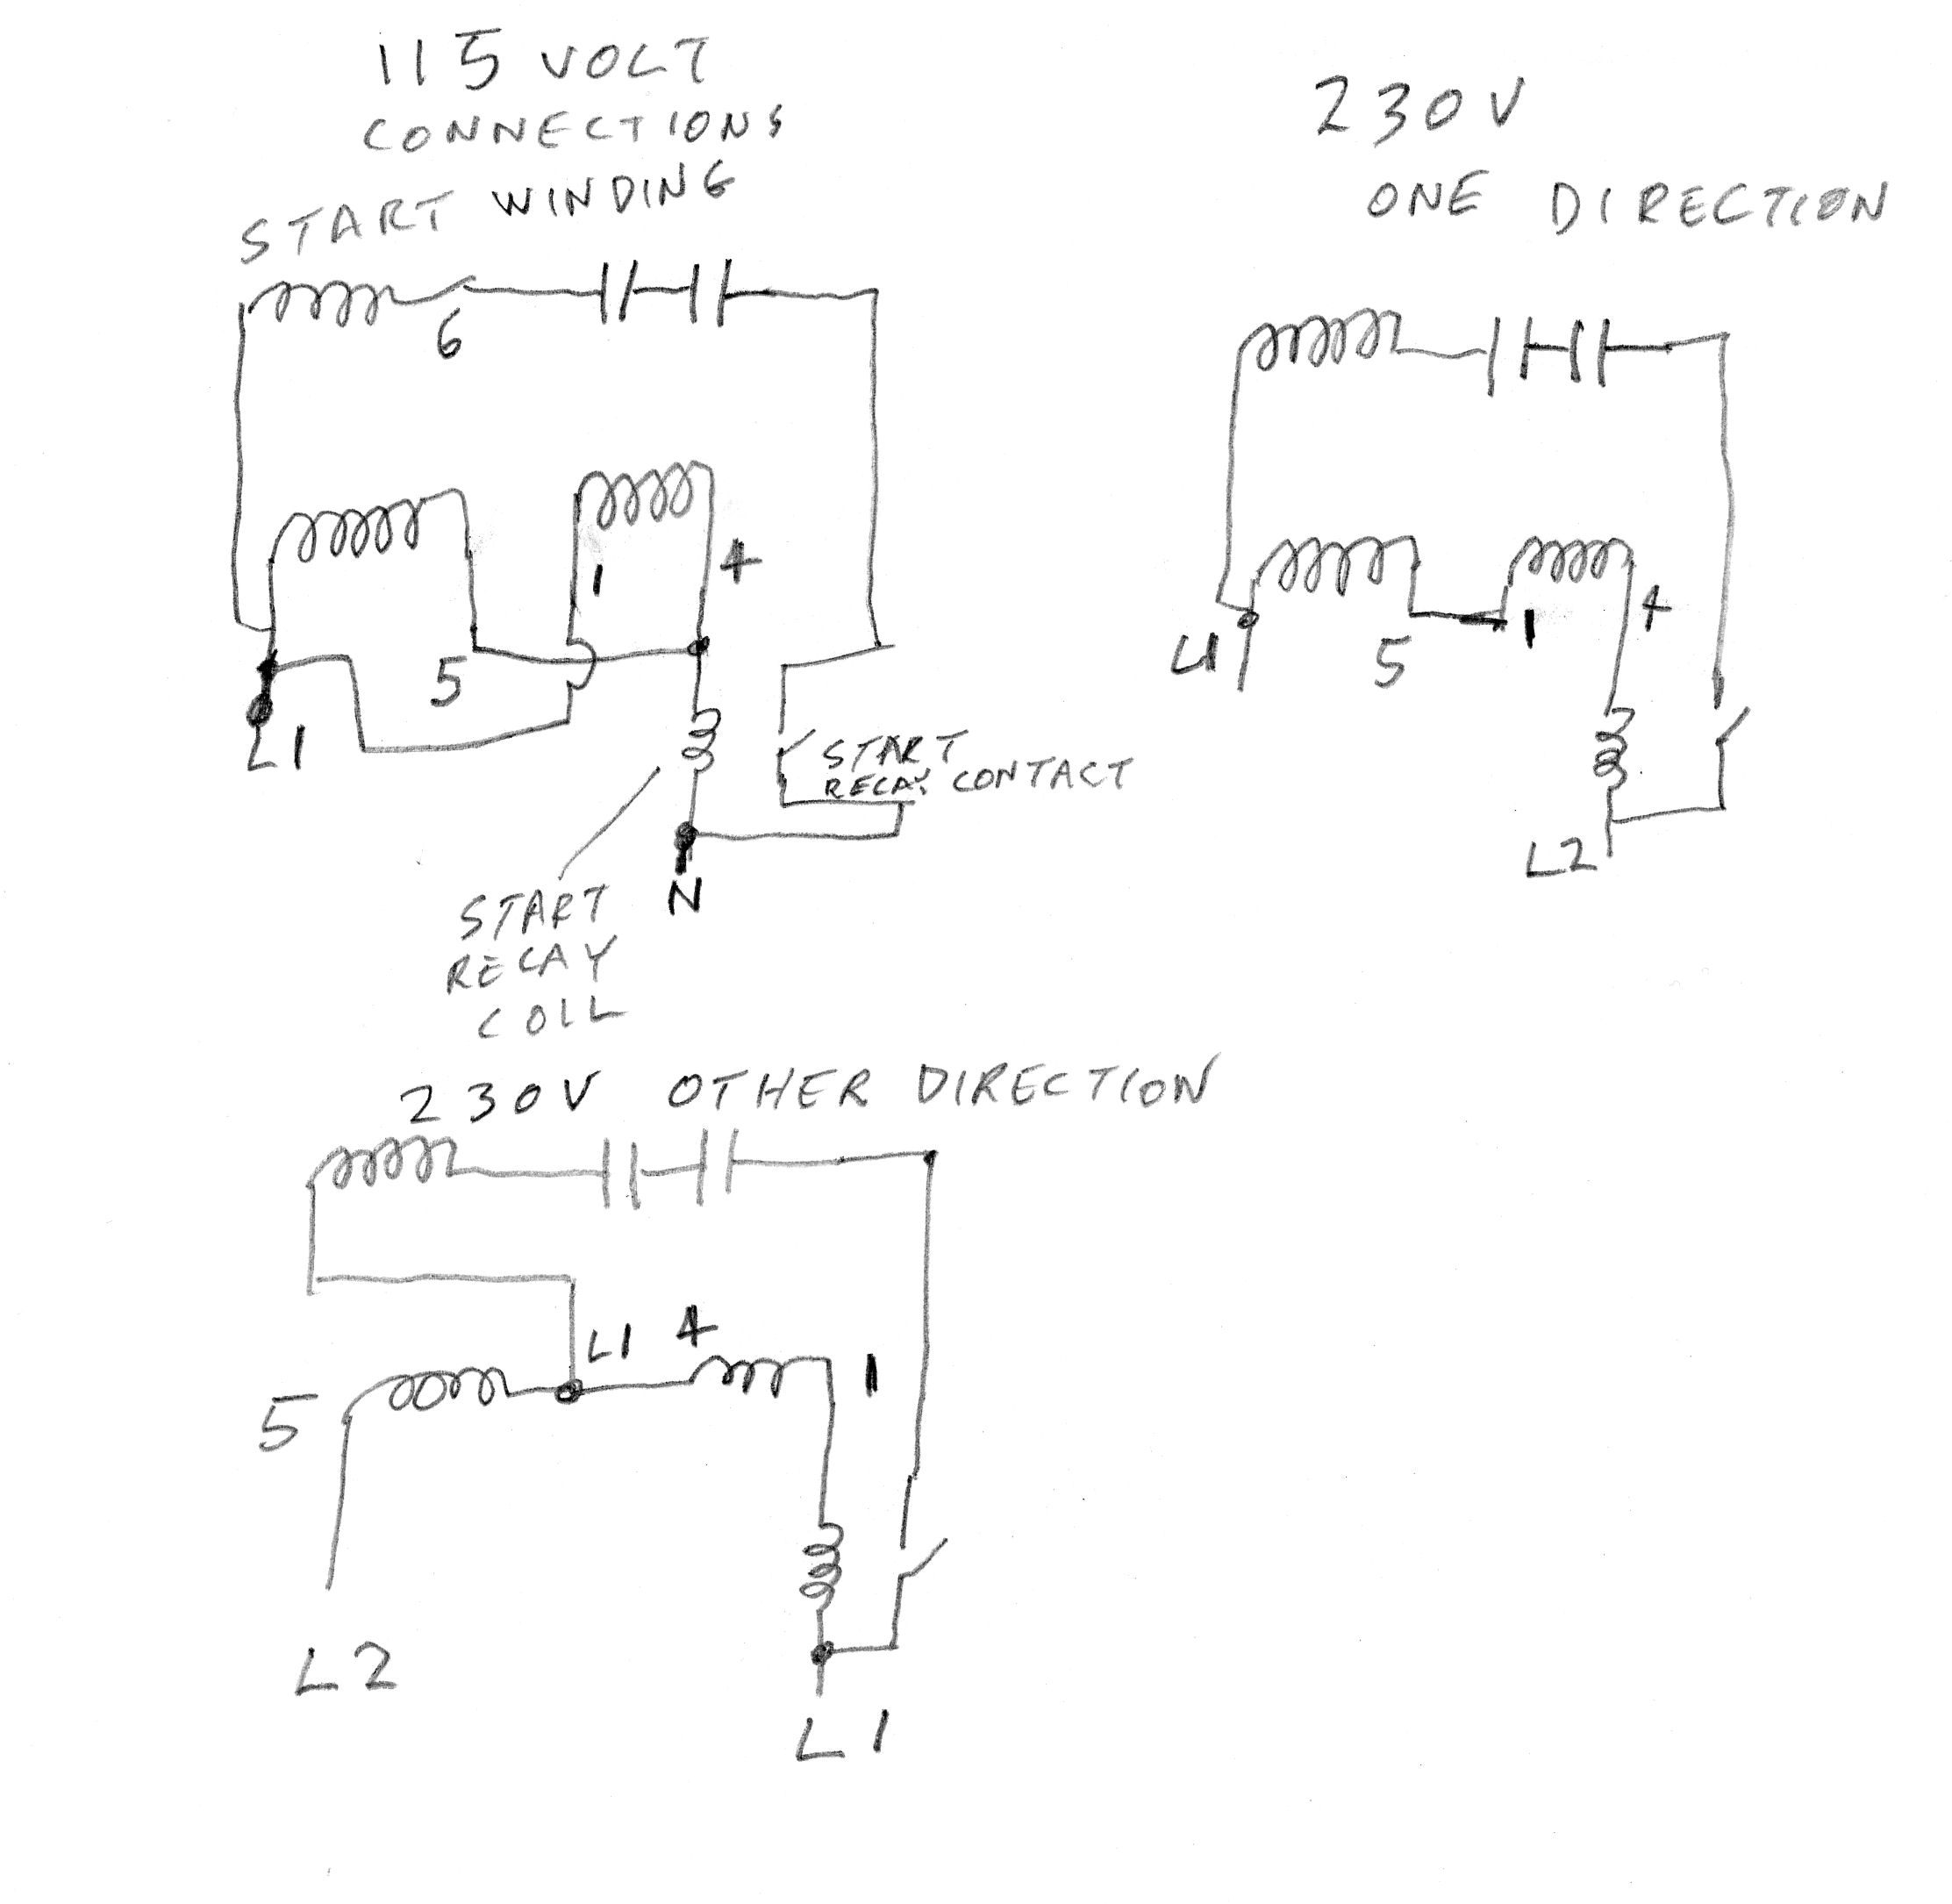 115 VOLT
CONNECTIONS
START WINDING
6
1
4
5
L1
START
RELAY CONTACT
N
START
RELAY
COIL
230V
ONE DIRECTION
4
1
L1
5
L2
230V OTHER DIRECTION
L1 4
1
5
L2
L1